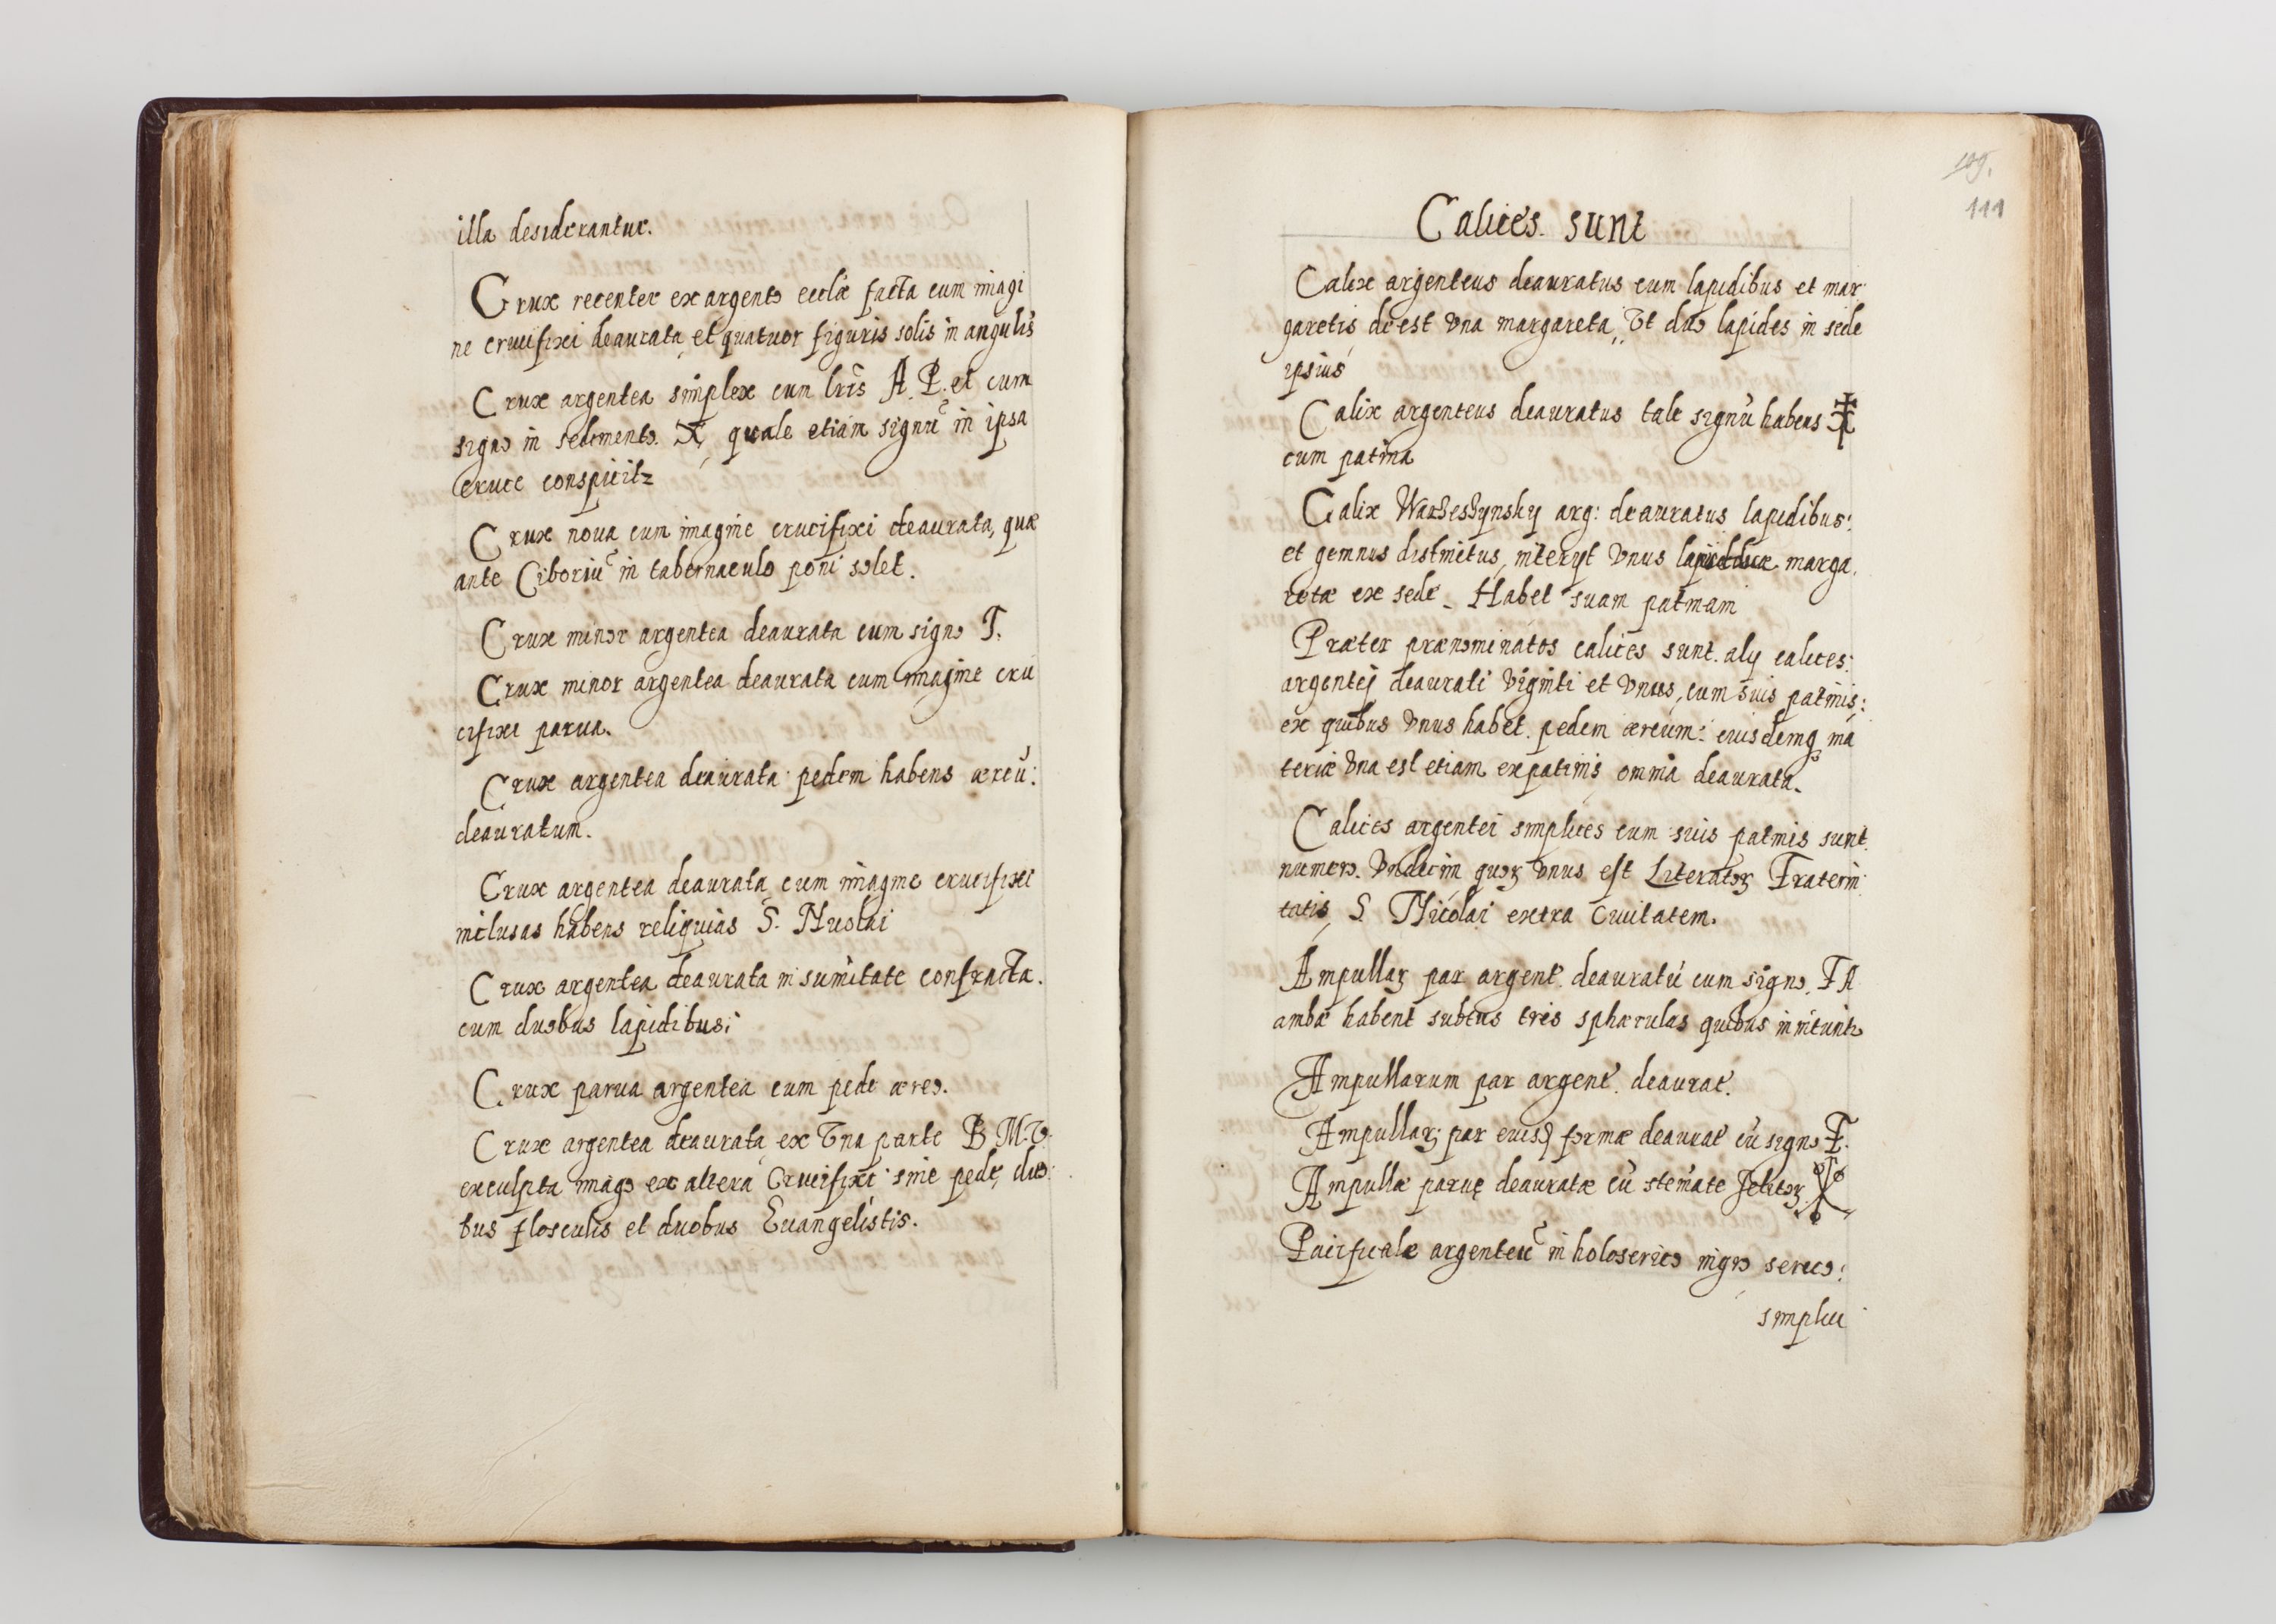 illa desiderantur.
Crux recenter ex argento ecclæ facta cum imagi
ne crucifixi deaurata, et quatuor figuris solis in angulis
Crux argentea simplex cum lris A. P. et cum
signo in sedimento. quale etiam signū in ipsa
cruce conspicitz
Crux noua cum imagine crucifixi deaurata, quæ
ante Ciboriū in tabernaculo poni solet.
Crux minor argentea deaurata cum signo T.
Crux minor argentea deaurata cum imagine cru
cifixi parua.
Crux argentea deaurata pedem habens æreū:
deauratum.
Crux argentea deaurata cum imagine crucifixi
inclusas habens reliquias S. Nicolai
Crux argentea deaurata in sumitate confracta.
cum duobus lapidibus;
Crux parua argentea cum pede æreo.
Crux argentea deaurata ex vna parte B. M. V.
exculpta imago ex altera Crucifixi sine pede, duo:
bus flosculis et duobus Euangelistis.
109.
111
Calices. sunt
Calix argenteus deauratus cum lapidibus et mar
garetis, deest vna margareta, Vt duo lapides in sede
ipsius
Calix argenteus deauratus tale signū habens
cum patina
Calix arg: deauratus lapidibus:
et gemnis distinctus, interijt vnus marga
retæ ex sede. Habet suam patinam
Præter prænominatos calices sunt. alij calices:
argentej deaurati viginti et vnus, cum suis patinis:
ex quibus vnus habet. pedem æreum: eiusdemq ma
teriæ vna est etiam ex patinis omnia deaurata.
Calices argentei simplices cum suis patinis sunt
numero. vndecim quoꝝ vnus est Literatoꝝ Fraterni
tatis, S. Nicolai extra Ciuitatem.
Ampullaꝝ par argent. deauratū cum signo. F A
ambæ habent subtus tres sphærulas quibus innitunt
Ampullarum par argent. deaurat.
Ampullaꝝ par formæ deaurat cū signo F.
Ampullæ paruę deauratæ cū stemate
Pacificale argenteū in holoserico nigro serico:
simplici